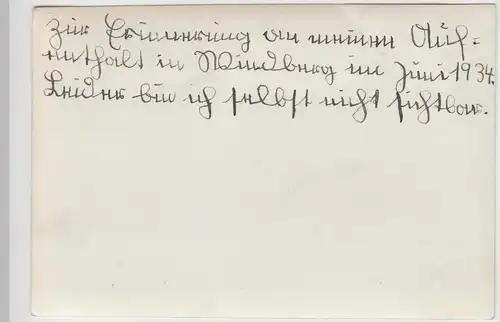 Zur Erinnerung an meinen Auf=
enthalt in Windberg im Juni 1934.
Leider bin ich selbst nicht sichtbar.